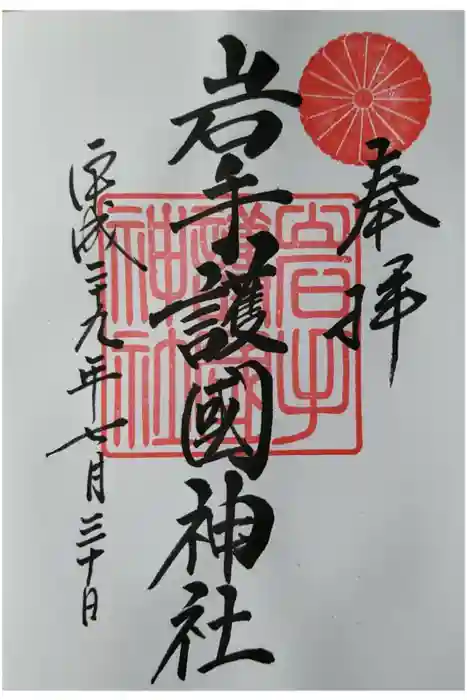 奉拝
岩手護國神社
岩手
護國
神社
平成二十九年七月三十日